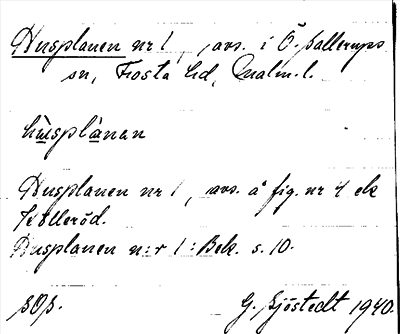 Husplanen nr 1, avs. i Ö. Sallerups
sn, Frosta hd, Malm. l.
hùsplànan
Husplanen nr 1, avs. å fig. nr 4 ek
Kölleröd.
Husplanen n:r 1: Bek. s. 10.
G. Sjöstedt 1940.